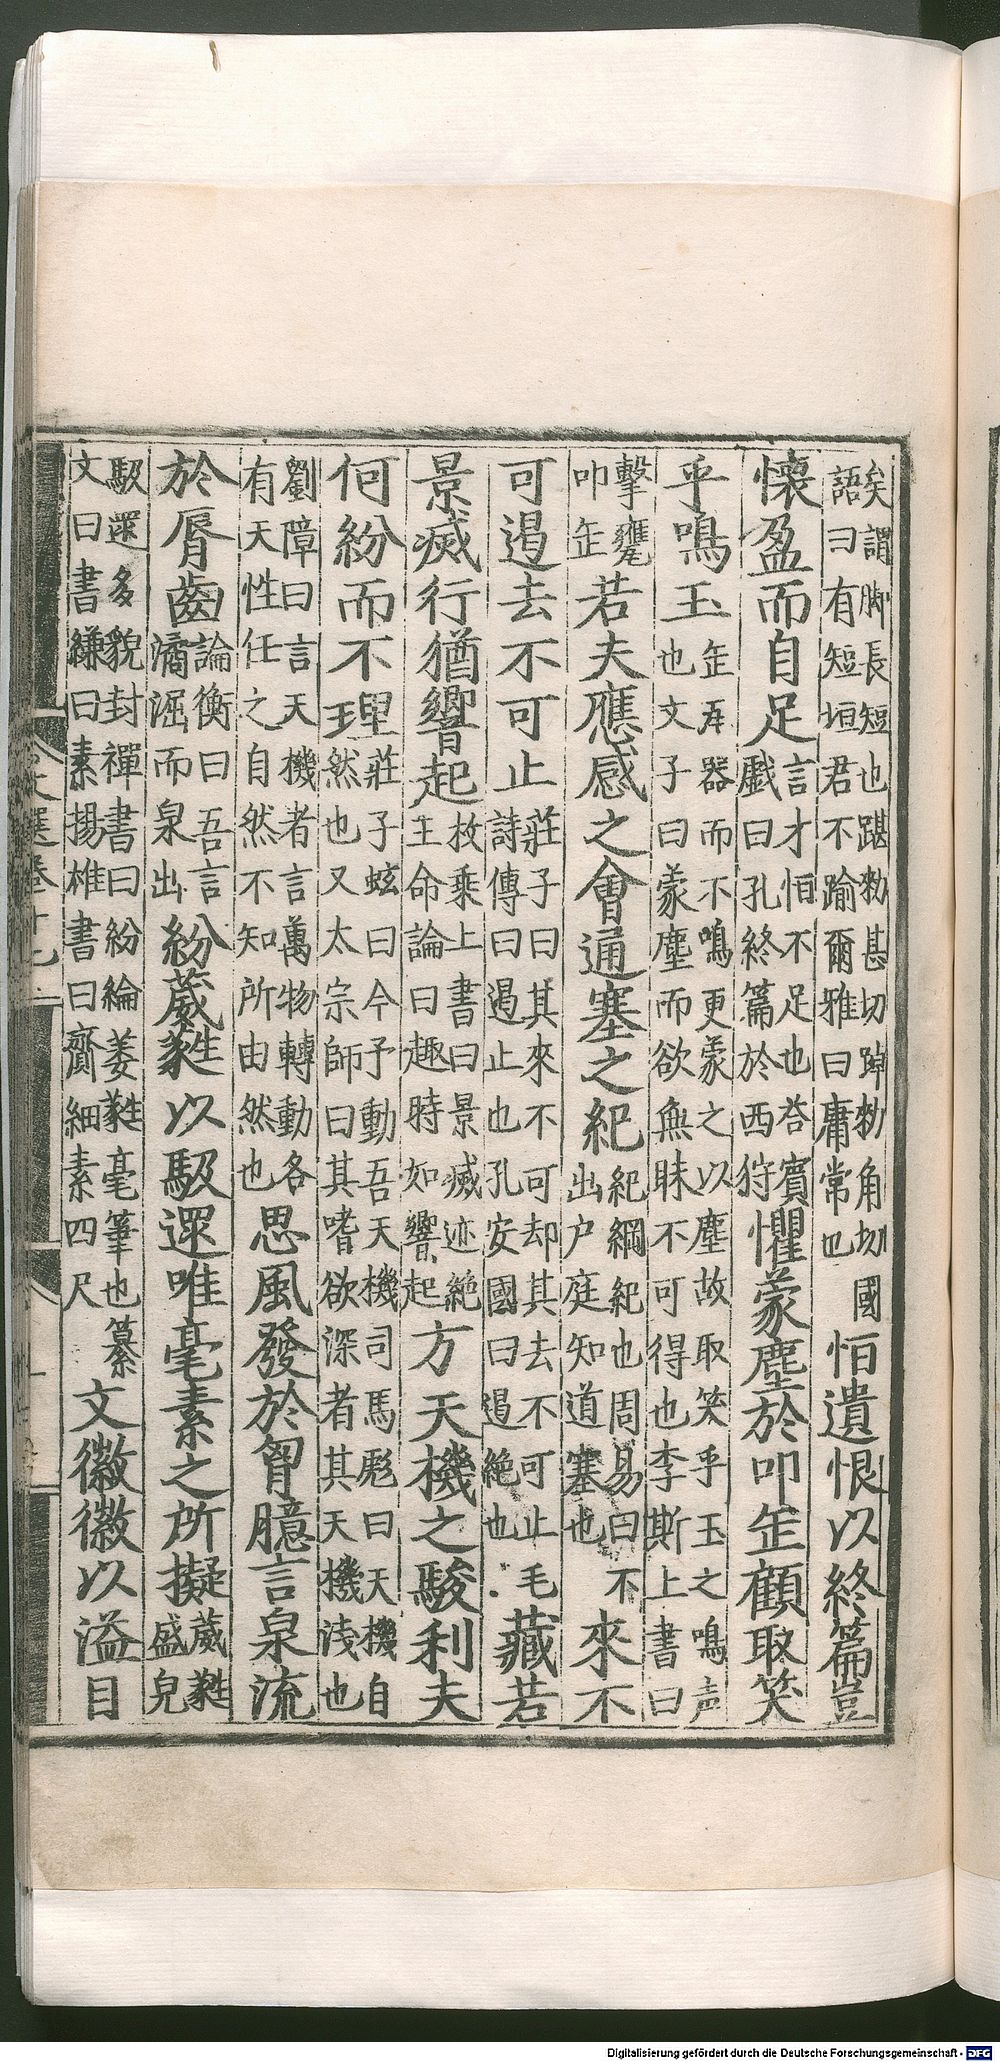 矣謂脚長短也踸勑甚切踔勑角切 國
語曰有短垣君不踰爾雅曰庸常也
恒遺恨以終篇豈
懷盈而自足
言才恒不足也荅賓
戲曰孔終篇於西狩
懼蒙塵於叩缶顧取笑
乎鳴玉
缶瓦器而不鳴更蒙之以塵故取笑乎玉之鳴声
也文子曰蒙塵而欲無眛不可得也李斯上書曰
擊甕
叩缶
若夫應感之會通塞之紀
紀綱紀也周易曰不
出户庭知道塞也
來不
可遏去不可止
莊子曰其來不可却其去不可止毛
詩傳曰遏止也孔安國曰遏絶也
藏若
景滅行猶響起
枚乗上書曰景滅迹絶
王命論曰趣時如響起
方天機之駿利夫
何紛而不理
莊子蚿曰今予動吾天機司馬彪曰天機自
然也又太宗師曰其嗜欲深者其天機淺也
劉障曰言天機者言萬物轉動各
有天性任之自然不知所由然也
思風發於胷臆言泉流
於脣齒
論衡曰吾言
潏淈而泉出
紛葳蕤以馺遝唯毫素之所擬
葳蕤
盛皃
馺遝多貌封禪書曰紛綸萎蕤毫筆也纂
文曰書縑曰素揚榷書曰齎細素四尺
文徽徽以溢目
文選卷十七
Digitalisierung gefördert durch die Deutsche Forschungsgemeinschaft - DFG